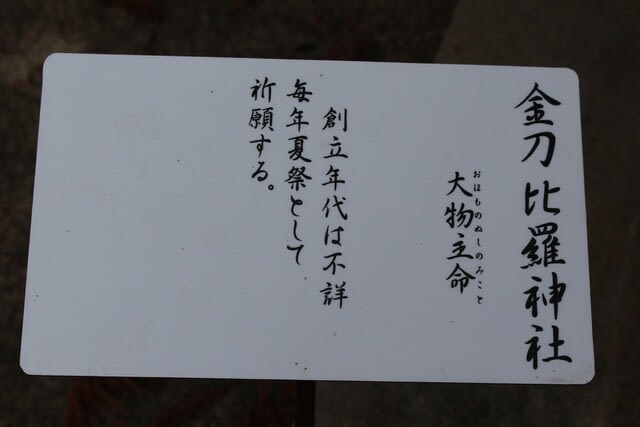 金刀比羅神社
おほものぬしのみこと
大物主命
創立年代は不詳
毎年夏祭として
祈願する。